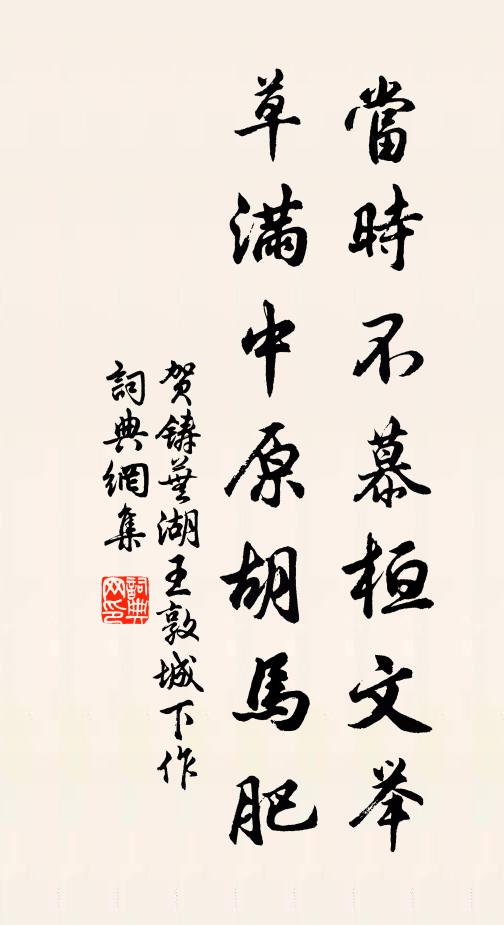 當時不慕桓文举
草滿中原胡馬肥
贺鑄蕪湖王敦城下作
詞典網集
詞典
网印